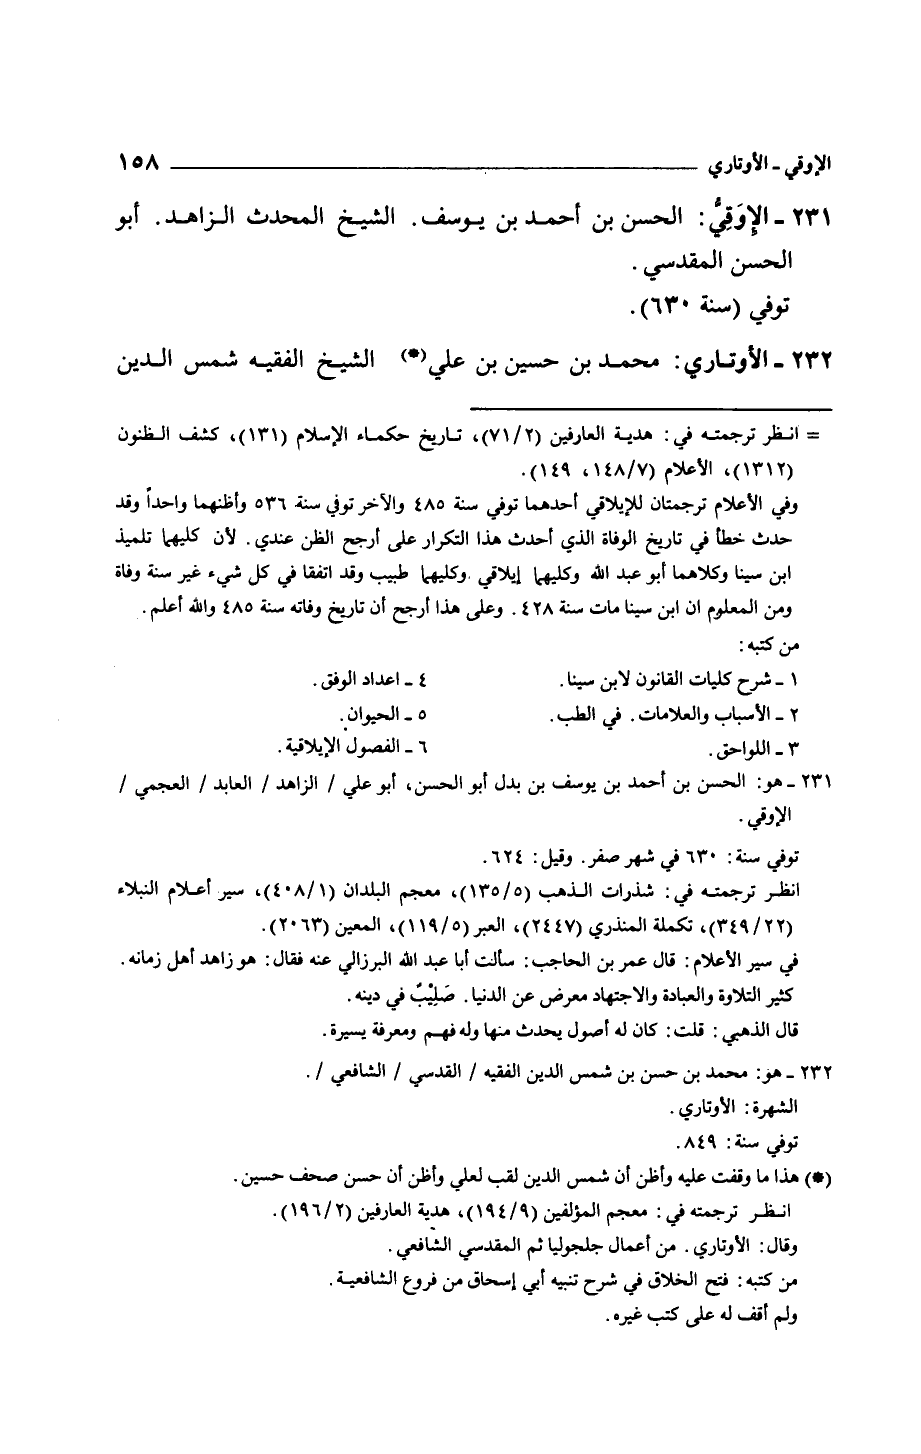 الإوقي - الأوتاري ١٥٨
٢٣١ - الإِوَقِيُّ: الحسن بن أحمد بن يوسف. الشيخ المحدث الزاهد. أبو
الحسن المقدسي.
توفي (سنة ٦٣٠).
٢٣٢ - الأوتاري: محمد بن حسين بن علي(*) الشيخ الفقيه شمس الدين
= انظر ترجمته في: هدية العارفين (٧١/٢)، تاريخ حكماء الإسلام (١٣١)، كشف الظنون
(١٣١٢)، الأعلام (١٤٨/٧، ١٤٩).
وفي الأعلام ترجمتان للإيلاقي أحدهما توفي سنة ٤٨٥ والآخر توفي سنة ٥٣٦ وأظنهما واحداً وقد
حدث خطأ في تاريخ الوفاة الذي أحدث هذا التكرار على أرجح الظن عندي. لأن كليهما تلميذ
ابن سينا وكلاهما أبو عبد الله وكليهما إيلاقي وكليهما طبيب وقد اتفقا في كل شيء غير سنة وفاة
ومن المعلوم ان ابن سينا مات سنة ٤٢٨. وعلى هذا أرجح أن تاريخ وفاته سنة ٤٨٥ والله أعلم.
من كتبه:
١ - شرح كليات القانون لابن سينا. ٤ - اعداد الوفق.
٢ - الأسباب والعلامات. في الطب. ٥ - الحيوان.
٣ - اللواحق. ٦ - الفصول الإيلاقية.
٢٣١ - هو: الحسن بن أحمد بن يوسف بن بدل أبو الحسن، أبو علي / الزاهد / العابد / العجمي /
الإوقي.
توفي سنة: ٦٣٠ في شهر صفر. وقيل: ٦٢٤.
انظر ترجمته في: شذرات الذهب (١٣٥/٥)، معجم البلدان (٤٠٨/١)، سير أعلام النبلاء
(٣٤٩/٢٢)، تكملة المنذري (٢٤٤٧)، العبر (١١٩/٥)، المعين (٢٠٦٣).
في سير الأعلام: قال عمر بن الحاجب: سألت أبا عبد الله البرزالي عنه فقال: هو زاهد أهل زمانه.
كثير التلاوة والعبادة والاجتهاد معرض عن الدنيا. صَلِيْبٌ في دينه.
قال الذهبي: قلت: كان له أصول يحدث منها وله فهم ومعرفة يسيرة.
٢٣٢ - هو: محمد بن حسن بن شمس الدين الفقيه / القدسي / الشافعي /.
الشهرة: الأوتاري.
توفي سنة: ٨٤٩.
(*) هذا ما وقفت عليه وأظن أن شمس الدين لقب لعلي وأظن أن حسن صحف حسين.
انظر ترجمته في: معجم المؤلفين (١٩٤/٩)، هدية العارفين (١٩٦/٢).
وقال: الأوتاري. من أعمال جلجوليا ثم المقدسي الشافعي.
من كتبه: فتح الخلاق في شرح تنبيه أبي إسحاق من فروع الشافعية.
ولم أقف له على كتب غيره.